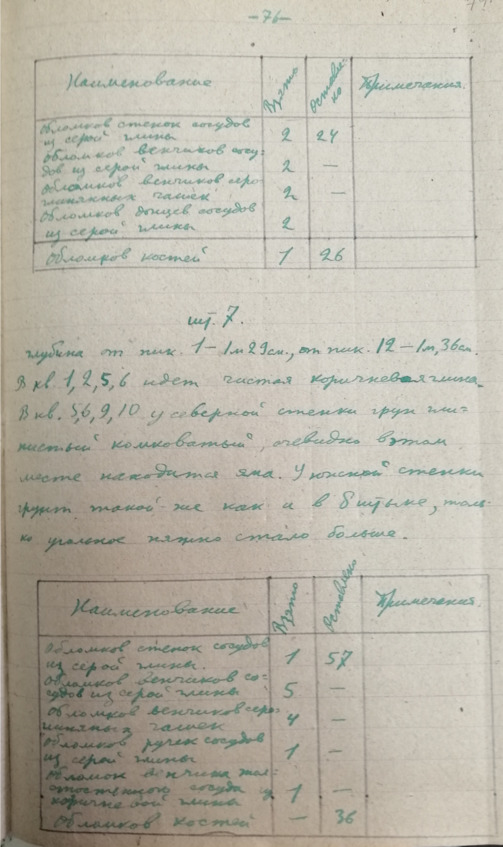 -76-
Наименование Взято Оставле-
но Примечания.
Обломков стенок сосудов
из серой глины 2 24
Обломков венчиков сосу-
дов из серой глины 2 —
Обломков венчиков серо
глинянных чашек 2 —
Обломков донцев сосудов
из серой глины 2
Обломков костей 1 26
шт. 7.
Глубина от пик. 1 – 1м 29см., от пик. 12 – 1м, 36см.
В кв. 1, 2, 5, 6 идет чистая коричневая глина.
В кв. 5, 6, 9, 10 у северной стенки грун гли-
нистый комковатый, очевидно в этом
месте находится яма. У южной стенки
грунт такой же как и в 6 штыке, толь-
ко угольное пятно стало больше.
Наименование Взято Оставлено Примечания.
Обломков стенок сосудов
из серой глины. 1 57
Обломков венчиков со-
судов из серой глины 5 —
Обломков венчиков серо
глиняных чашек 4 —
Обломков ручек сосудов
из серой глины 1 —
Обломок венчика тол-
стостенного сосуда из
коричневой глины 1 —
Обломков костей — 36